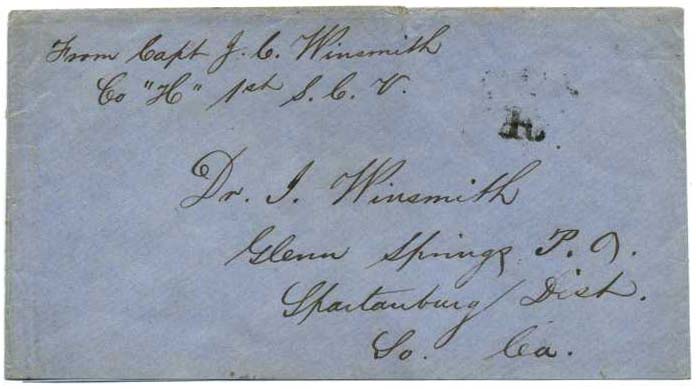 From Capt J. C. Winsmith
Co "H" 1st S. C. V.
Dr. J. Winsmith
Glenn Springs P. O.
Spartanburg Dist.
So. Ca.